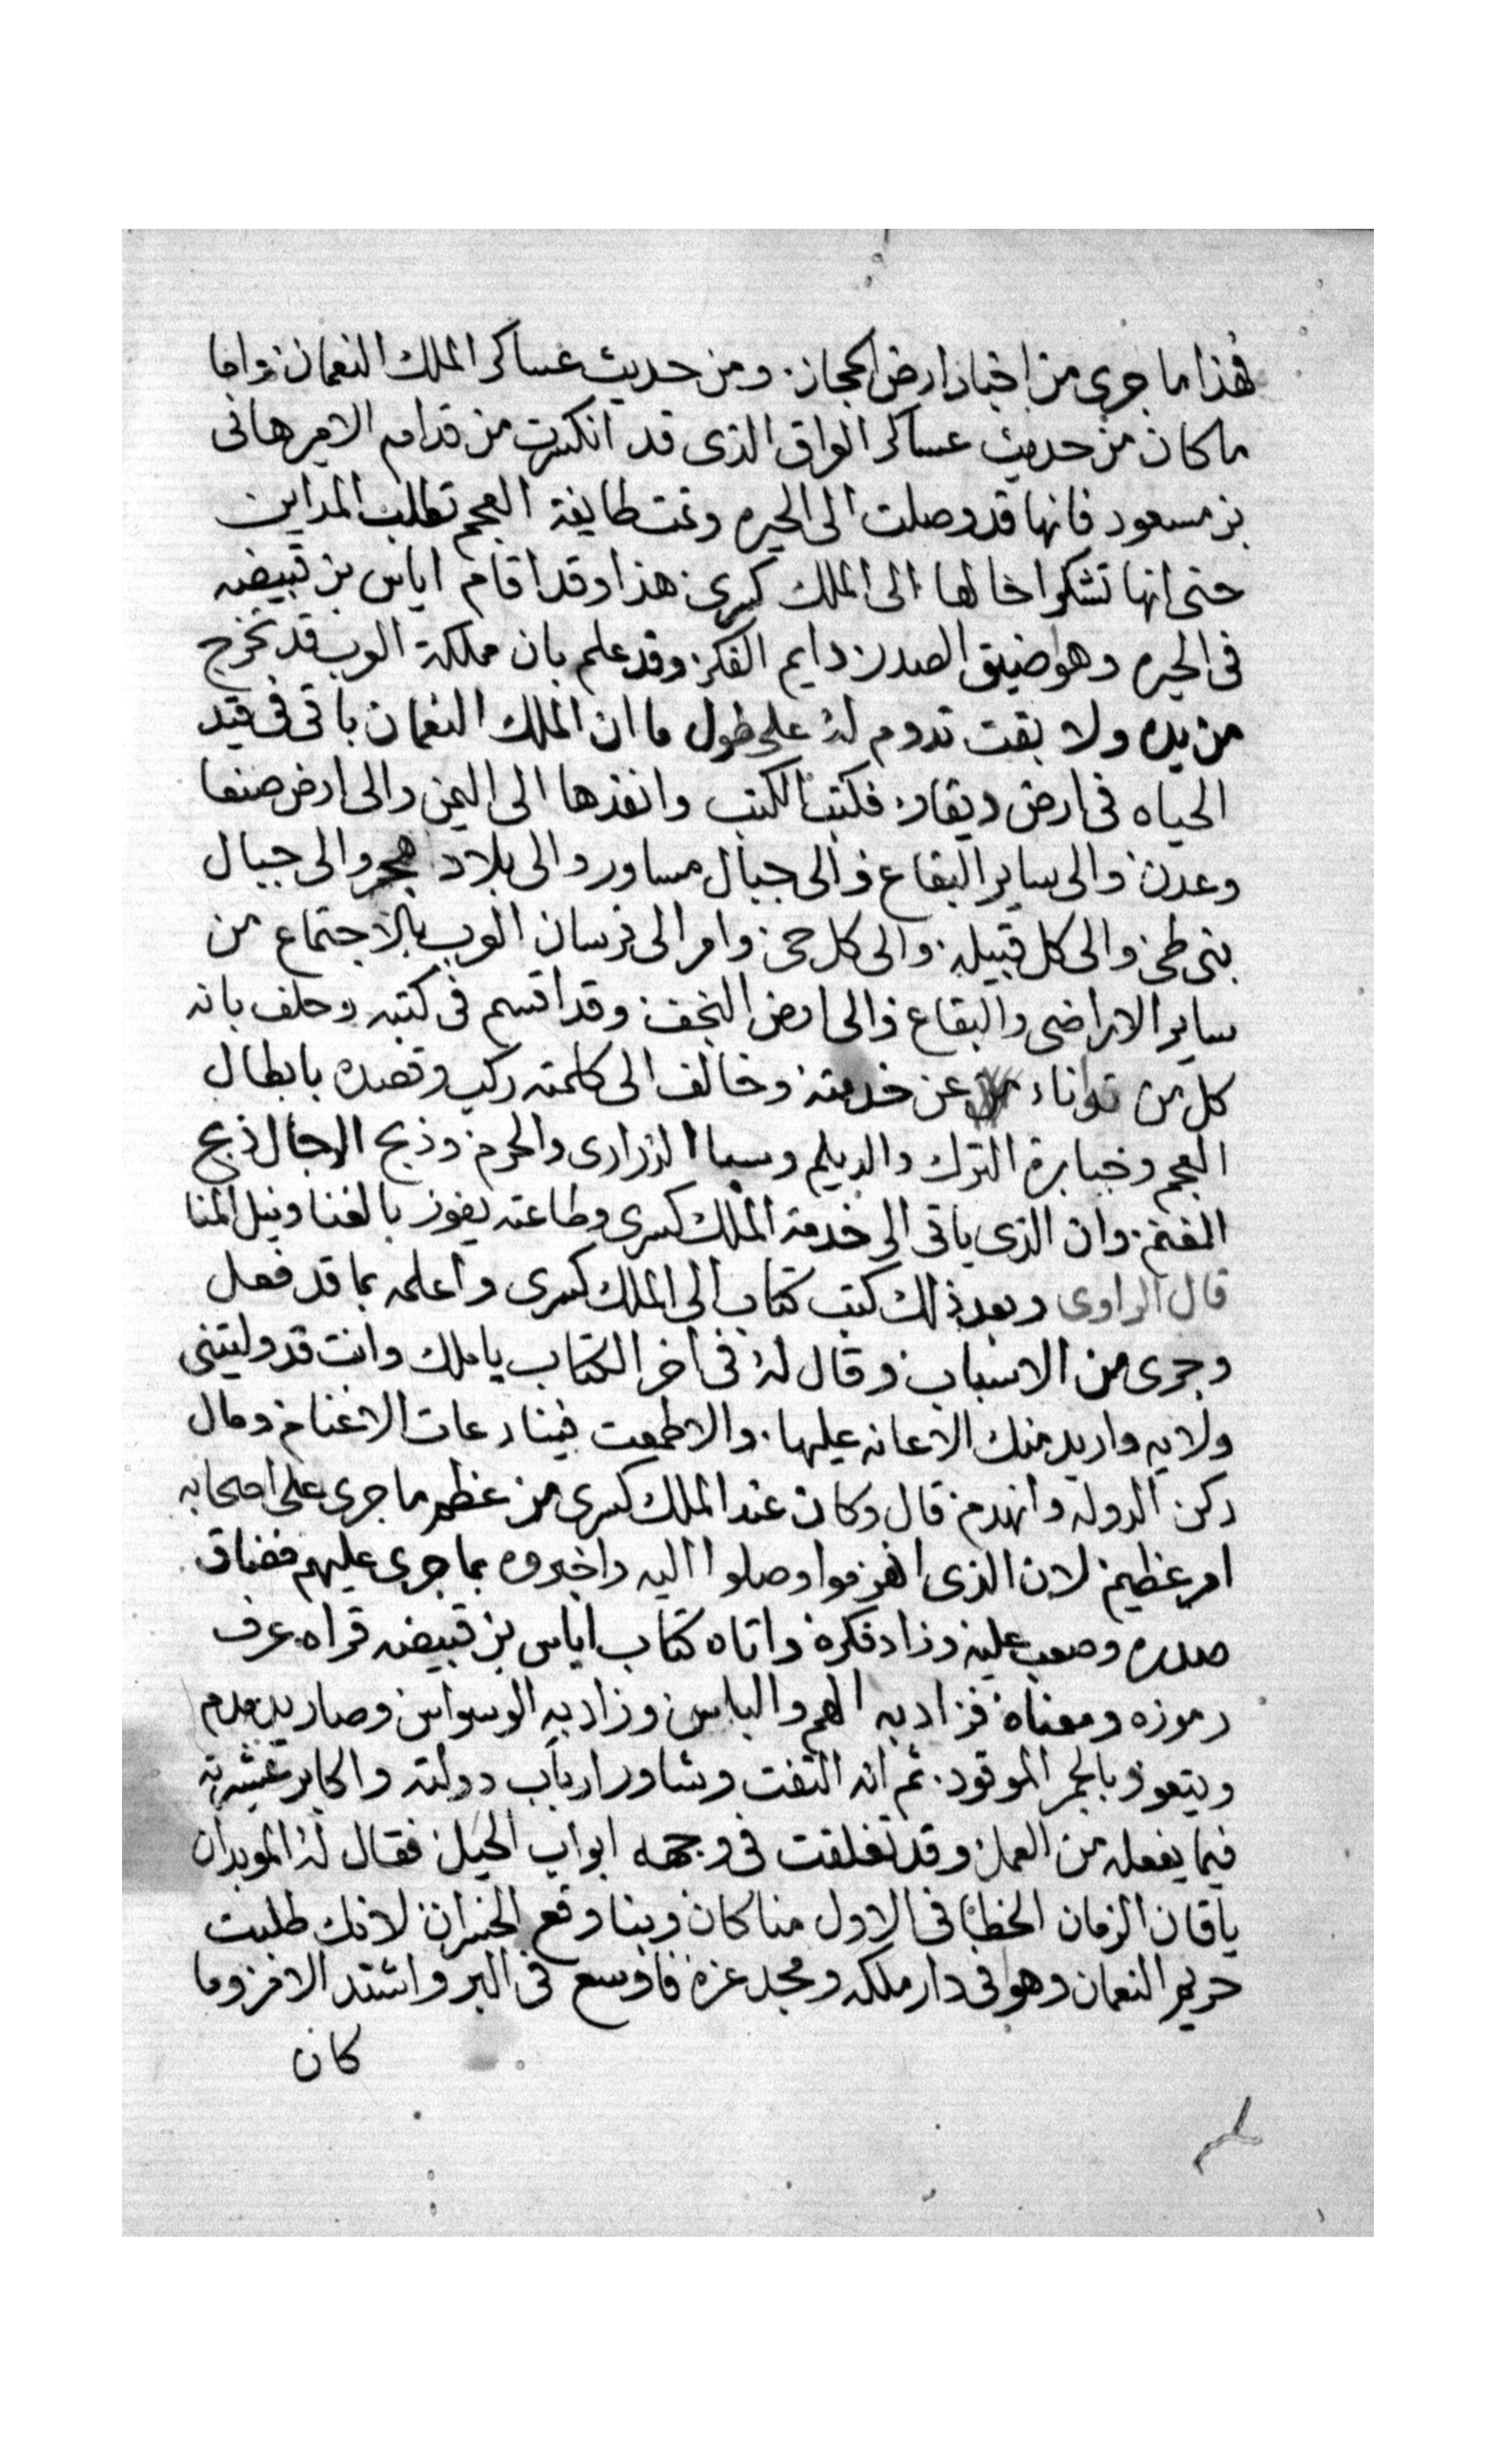 هذا ما جرى من اخبار ارض الحجاز. ومن حديث عساكر الملك النعمان واما
ما كان من حديث عساكر العراق الذى قد انكسرت من قدام الامير هانى
بن مسعود فانها قد وصلت الى الحيره وتمت طايفة العجم تطلب المداين
حتى انها تشكوا حالها الى الملك كسرى هذا وقد اقام اياس بن قبيضه
فى الحيره وهو اضيق الصدر دايم الفكر وقد علم بان مملكة العرب قد تخرج
من يده ولا بقت تدوم له على طول ما ان الملك النعمان باقى فى قيد
الحياه فى ارض ديقار فكتب الكتب وانفذها الى اليمن والى ارض صنعا
وعدن والى ساير البقاع والى جبال مساور والى بلاد هجر والى جبال
بنى طى والى كل قبيله والى كل حى وامر الى فرسان العرب بالاجتماع من
ساير الاراضى والبقاع والى ارض النجف وقد اقسم فى كتبه وحلف بانه
كل من توانا عن خدمته وخالف الى كلمته ركب وقصده بابطال
العجم وجبابرة الترك والديلم وسبا الذرارى والحرم وذبح الرجال ذبح
الغنم. وان الذى ياتى الى خدمة الملك كسرى وطاعته يفوز بالغنا ونيل المنا
قال الراوى وبعد ذلك كتب كتاب الى الملك كسرى واعلمه بما قد فعل
وجرى من الاسباب وقال له فى اخر الكتاب يا ملك وانت قد وليتنى
ولايه واريد منك الاعانه عليها. والا طمعت فينا رعات الاغنام ومال
ركن الدوله وانهدم قال وكان عند الملك كسرى من عظم ما جرى على اصحابه
امر عظيم لان الذى انهزموا وصلوا اليه واخبروه بما جرى عليهم فضاق
صدره وصعب عليه وزاد فكره واتاه كتاب اياس بن قبيضه قراه عرف
رموزه ومعناه فزاد به الهم والباس وزاد به الوسواس وصار يدمدم
ويتعوذ بالجمر الموقود. ثم انه التفت وشاور ارباب دولته واكابر عشيرته
فيما يفعله من العمل وقد تغلقت فى وجهه ابواب الحيل فقال له الموبدان
ياقان الزمان الخطا فى الاول منا كان وبنا وقع الخسران لانك طلبت
حريم النعمان وهو فى دار ملكه ومجد عزه فاوسع فى البر واشتد الامر وما
كان